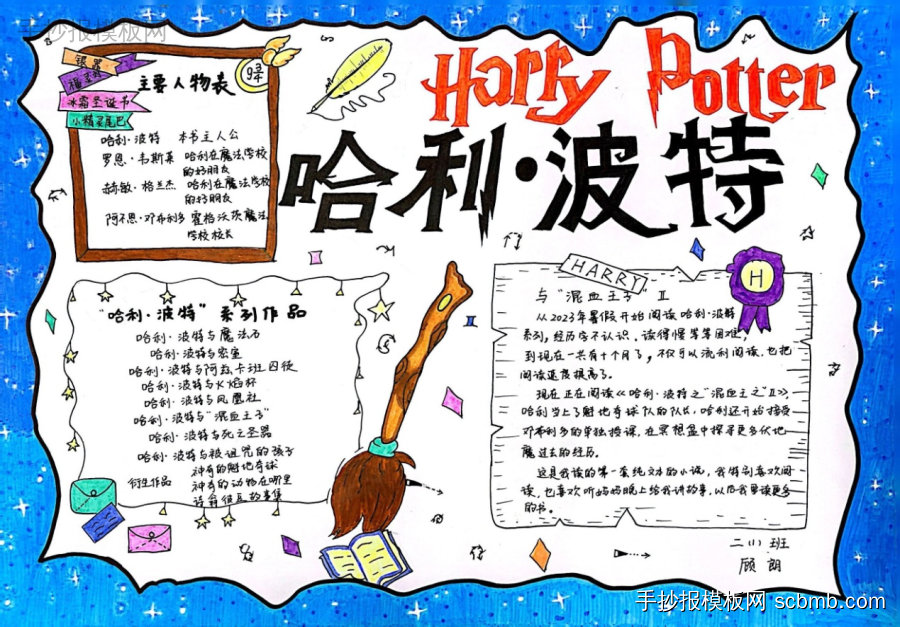 手抄报模板网
Harry Potter
哈利·波特
9¾
银器
福灵剂
冰霜圣诞书
小精灵尾巴
主要人物表
哈利·波特 本书主人公
罗恩·韦斯莱 哈利在魔法学校
的好朋友
赫敏·格兰杰 哈利在魔法学校
的好朋友
阿不思·邓布利多 霍格沃茨魔法
学校校长
"哈利·波特"系列作品
哈利·波特与魔法石
哈利·波特与密室
哈利·波特与阿兹卡班囚徒
哈利·波特与火焰杯
哈利·波特与凤凰社
哈利·波特与"混血王子"
哈利·波特与死亡圣器
哈利·波特与被诅咒的孩子
衍生作品
神奇的魁地奇球
神奇的动物在哪里
诗翁彼豆故事集
HARRY
H
与"混血王子"II
从2023年暑假开始阅读哈利·波特
系列,经历字不认识、读得慢等等困难,
到现在一共有十个月了,不仅可以流利阅读,也把
阅读速度提高了。
现在正在阅读《哈利·波特之"混血王之"II》,
哈利当上了魁地奇球队的队长,哈利还开始接受
邓布利多的单独授课,在冥想盆中探寻更多伏地
魔过去的经历。
这是我读的第一套纯文本的小说,我特别喜欢阅
读,也喜欢听妈妈晚上给我讲故事,以后我要读更多
的书。
二(1)班
顾朗
手抄报模板网 scbmb.com